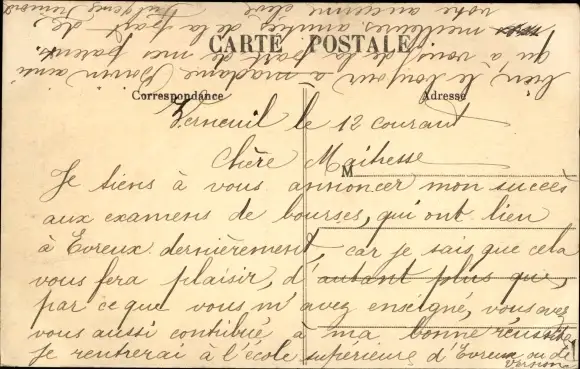 CARTE POSTALE
Correspondance
Adresse
M
Verneuil le 12 courant
Chère Maîtresse
Je tiens à vous annoncer mon succès
aux examens de bourses, qui ont lieu
à Evreux dernièrement, car je sais que cela
vous fera plaisir, d'autant plus que,
par ce que vous m'avez enseigné, vous avez
vous aussi contribué à ma bonne réussite.
Je rentrerai à l'école supérieure d'Evreux ou de
Vernon
bien le bonjour à madame Bonnin ainsi
qu'à vous de la part de mes parents.
meilleures amitiés de la part de
votre ancienne élève